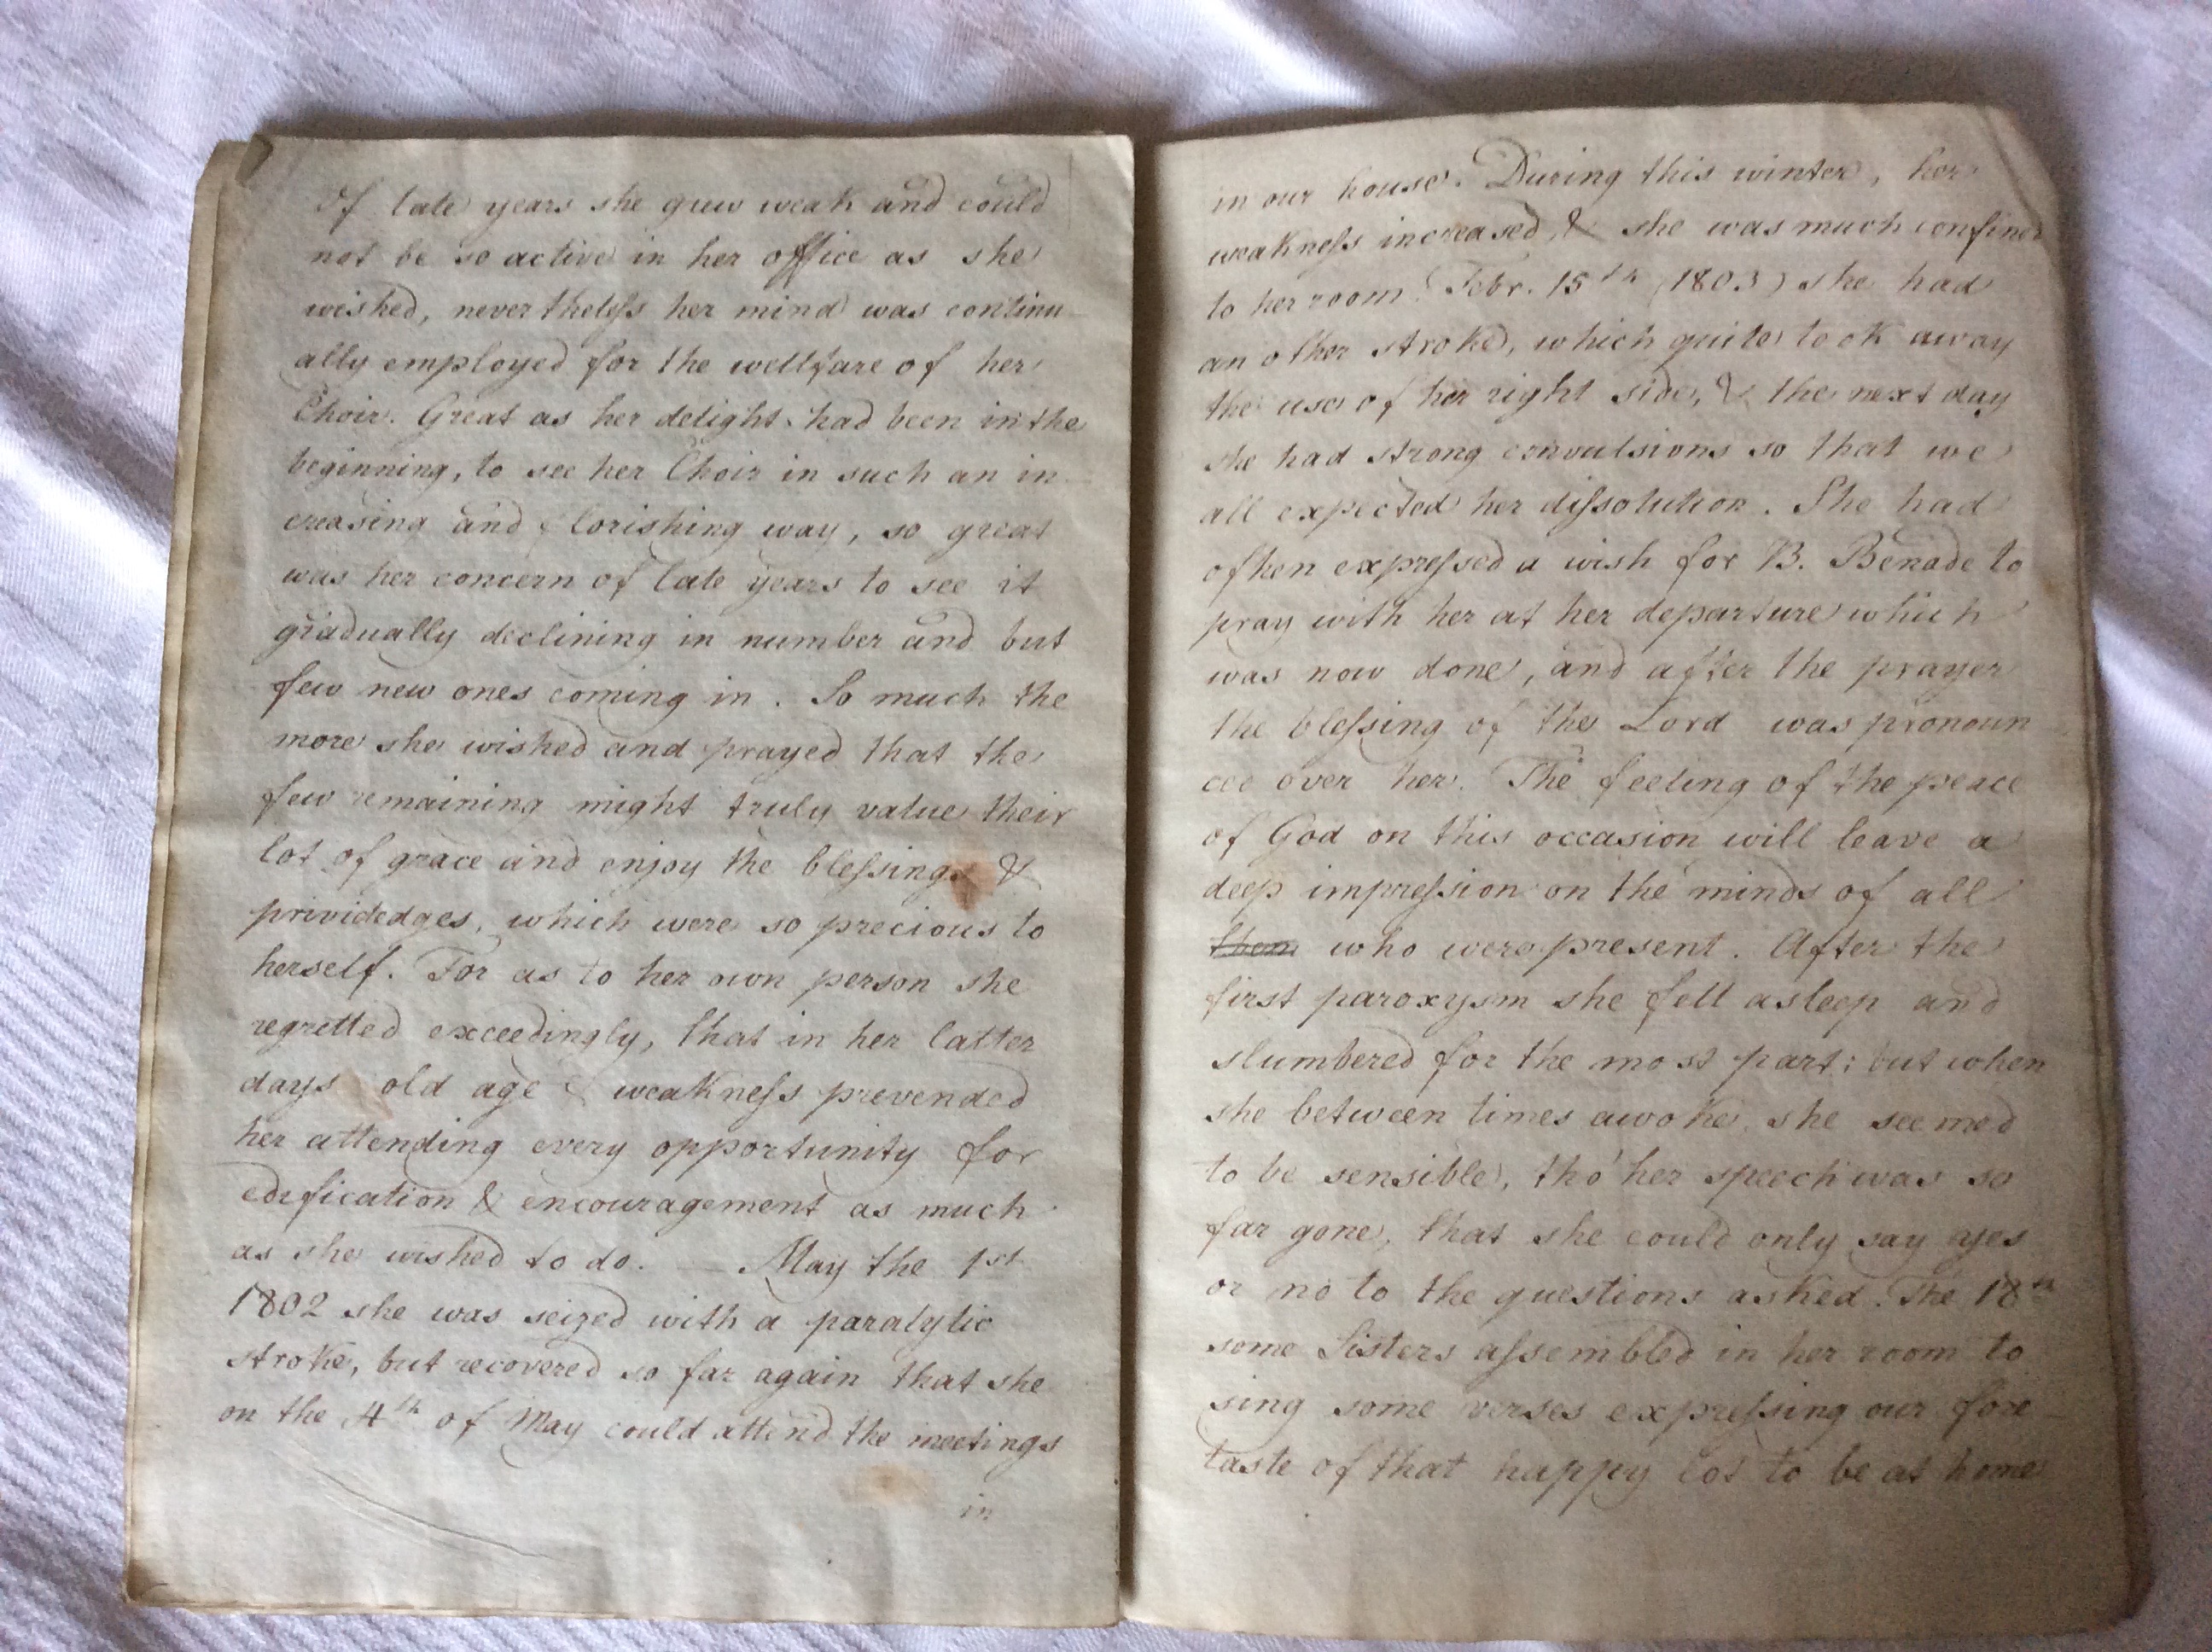 Of late years she grew weak and could
not be so active in her office as she
wished, nevertheless her mind was continu
ally employed for the wellfare of her
Choir. Great as her delight had been in the
beginning, to see her Choir in such an in
creasing and florishing way, so great
was her concern of late years to see it
gradually declining in number and but
few new ones coming in. So much the
more she wished and prayed that the
few remaining might truly value their
lot of grace and enjoy the blessings &
prividedges, which were so precious to
herself. For as to her own person she
regretted exceedingly, that in her latter
days old age & weakness prevended
her attending every opportunity for
edification & encouragement as much
as she wished to do. — May the 1st
1802 she was seized with a paralytic
stroke, but recovered so far again that she
on the 4th of May could attend the meetings
in
in our house. During this winter, her
weakness increased, & she was much confined
to her room. Febr. 15th (1803) she had
an other stroke, which quite took away
the use of her right side, & the next day
she had strong convulsions so that we
all expected her dissolution. She had
often expressed a wish for B. Benade to
pray with her at her departure which
was now done, and after the prayer
the blessing of the Lord was pronoun
ced over her. The feeling of the peace
of God on this occasion will leave a
deep impression on the minds of all
them who were present. After the
first paroxysm she fell asleep and
slumbered for the most part; but when
she between times awoke, she seemed
to be sensible, tho' her speech was so
far gone, that she could only say yes
or no to the questions asked. The 18th
some Sisters assembled in her room to
sing some verses expressing our fore
taste of that happy lot to be at home